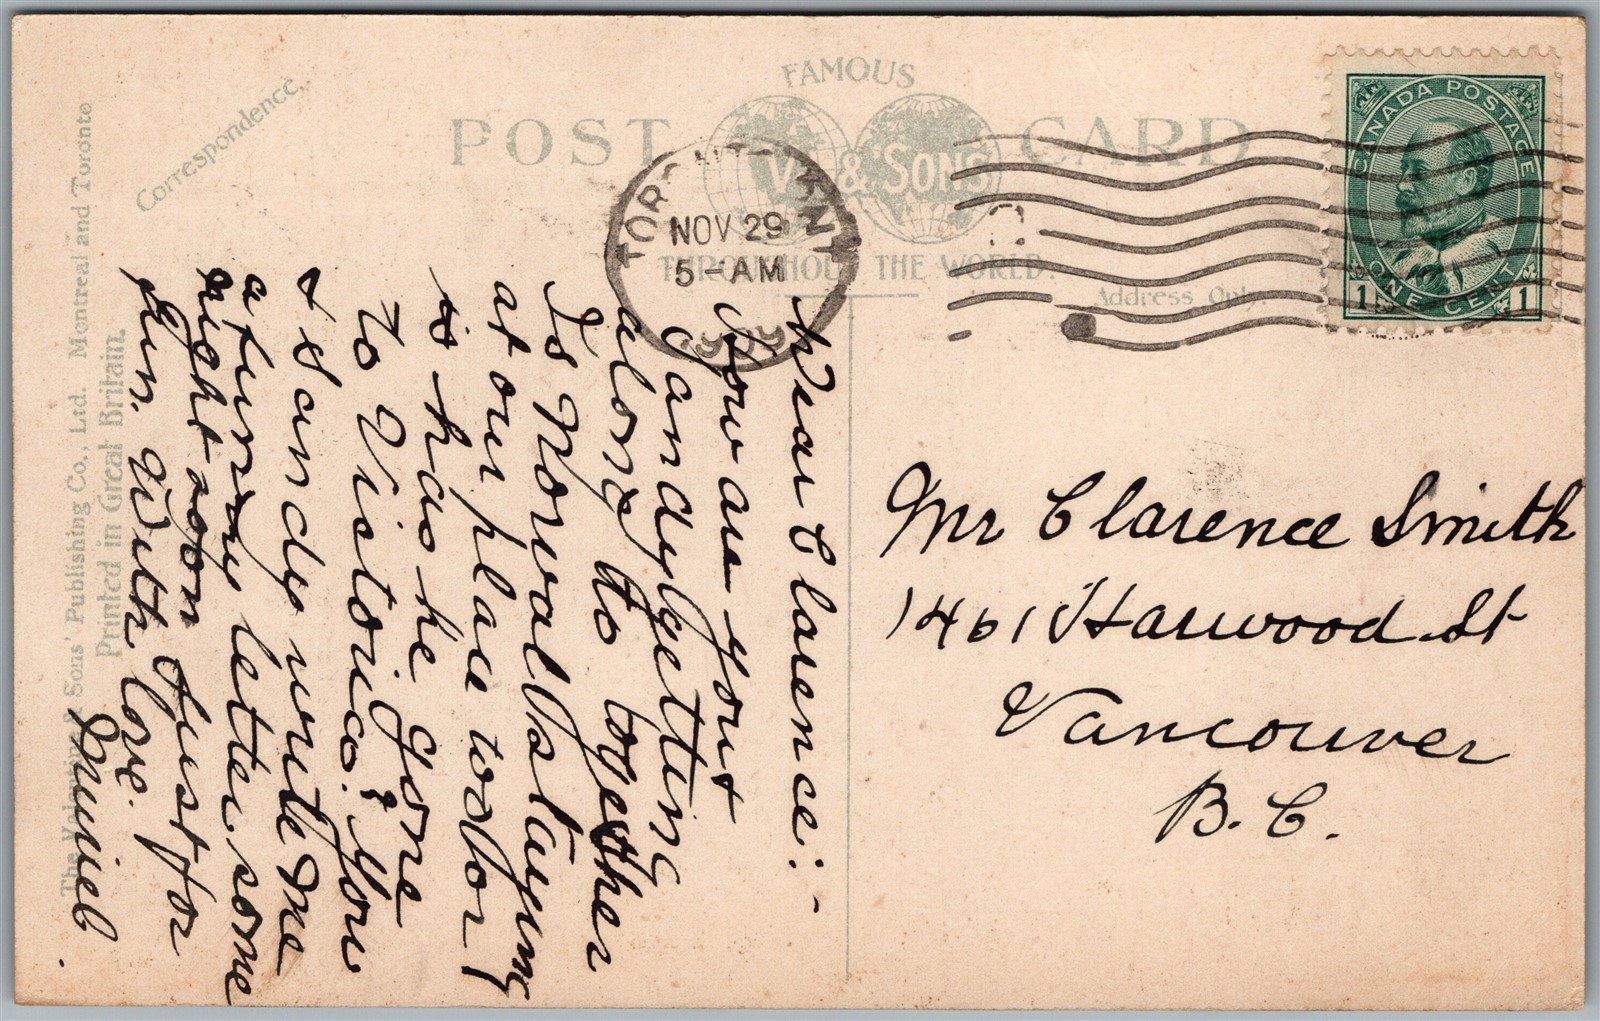 FAMOUS
POST CARD
V & SONS
THROUGHOUT THE WORLD
Correspondence.
Address Only.
The & Sons' Publishing Co., Ltd. Montreal and Toronto
Printed in Great Britain.
TORONTO
NOV 29
5-AM
CANADA POSTAGE
ONE CENT
1 1
Dear Clarence:-
How are you &
Sandy getting
along to together
Is Norval staying
at our place to or
is has he gone
to Victoria? You
& Sandy write me
a funny letter some
night soon just for
fun. With love.
Muriel.
Mr Clarence Smith
1461 Harwood St
Vancouver
B. C.